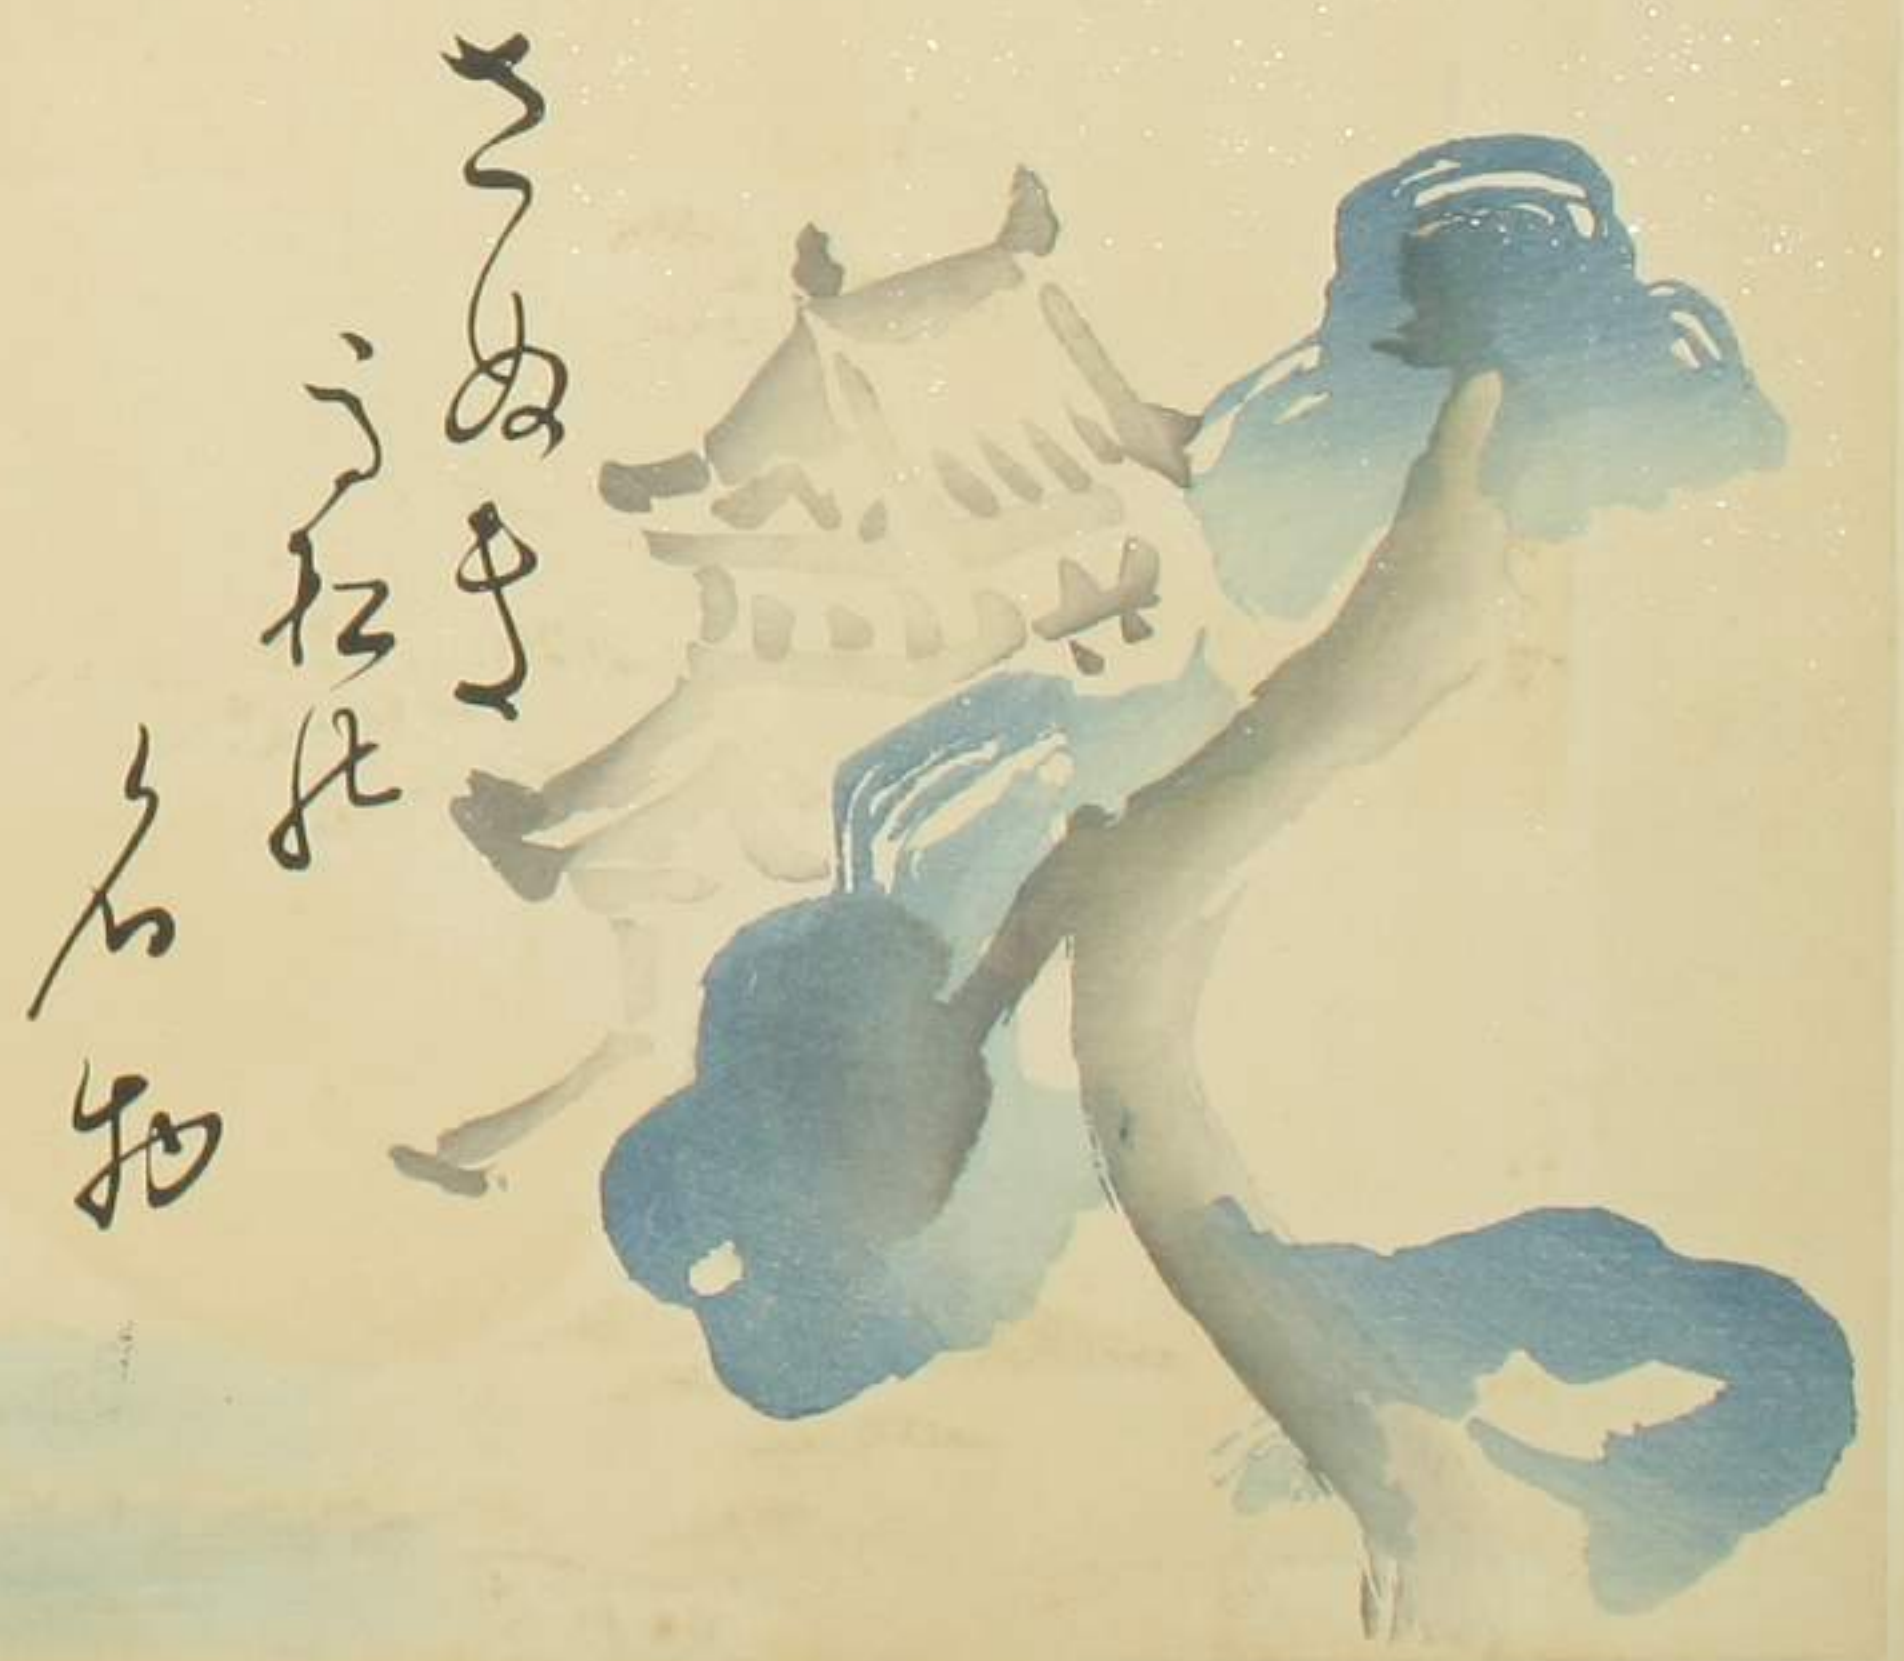 さぬき
高松の
名物